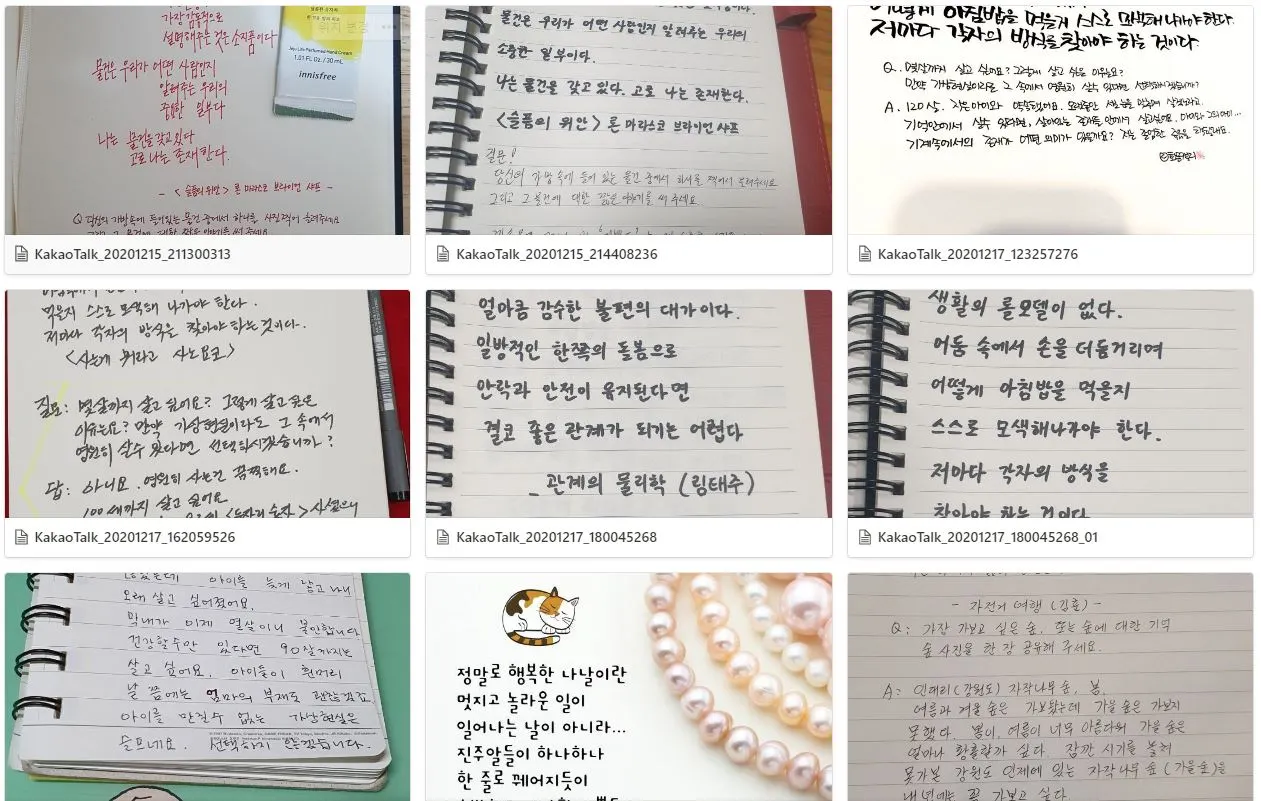 가장 감동적으로
설명해주는 것은 소지품이다
물건은 우리가 어떤 사람인지
알려주는 우리의
중요한 일부다
나는 물건을 갖고 있다
고로 나는 존재한다.
- <슬픔의 위안> 론 마라스코 브라이언 셔프 -
Q 당신의 가방속에 들어있는 물건 중에서 하나를 사진찍어 올려주세요
Jeju Life Perfumed Hand Cream
1.01 FL. Oz. / 30 mL
innisfree
KakaoTalk_20201215_211300313
물건은 우리가 어떤 사람인지 알려주는 우리의
소중한 일부이다.
나는 물건을 갖고 있다. 고로 나는 존재한다.
<슬픔의 위안> 론 마라스코 브라이언 셔프
질문!
당신의 가방 속에 들어 있는 물건 중에서 하나를 찍어서 올려주세요
그리고 그 물건에 대한 짧은 이야기를 써 주세요
KakaoTalk_20201215_214408236
어떻게 아침밥을 먹을지 스스로 모색해 나가야 한다.
저마다 각자의 방식을 찾아야 하는 것이다.
Q. 몇살까지 살고 싶어요? 그렇게 살고 싶은 이유는요?
만약 가상현실이라도 그 속에서 영원히 살 수 있다면 선택하시겠습니까?
A. 120살.
KakaoTalk_20201217_123257276
먹을지 스스로 모색해 나가야 한다.
저마다 각자의 방식을 찾아야 하는 것이다.
<사는게 뭐라고 사노요코>
질문: 몇살까지 살고 싶어요? 그렇게 살고 싶은
이유는요? 만약 가상현실이라도 그 속에서
영원히 살수 있다면 선택하시겠습니까?
답: 아니요. 영원히 사는건 끔찍해요.
100세까지 살고 싶어요
KakaoTalk_20201217_162059526
얼마큼 감수한 불편의 대가이다.
일방적인 한쪽의 돌봄으로
안락과 안전이 유지된다면
결코 좋은 관계가 되기는 어렵다
_ 관계의 물리학 (림태주)
KakaoTalk_20201217_180045268
생활의 롤모델이 없다.
어둠 속에서 손을 더듬거리며
어떻게 아침밥을 먹을지
스스로 모색해나가야 한다.
저마다 각자의 방식을
찾아야 하는 것이다
KakaoTalk_20201217_180045268_01
아이를 늦게 낳고 나니
오래 살고 싶어졌어요.
막내가 이제 열살이니 불안합니다
건강할수만 있다면 90살까지는
살고 싶어요. 아이들이 흰머리
날 쯤에는 엄마의 부재도 괜찮겠죠.
아이를 만질수 없는 가상현실은
슬프네요. 선택하지 않겠습니다.
정말로 행복한 나날이란
멋지고 놀라운 일이
일어나는 날이 아니라...
진주알들이 하나하나
한 줄로 꿰어지듯이
- 자전거 여행 (김훈) -
Q: 가장 가보고 싶은 숲, 또는 숲에 대한 기억
숲 사진을 한 장 공유해 주세요.
A: 인제리(강원도) 자작나무숲, 봄,
여름과 겨울 숲은 가보았는데 가을 숲은 가보지
못했다. 봄이, 여름이 너무 아름다워 가을 숲은
얼마나 황홀할까 싶다. 잠깐 시기를 놓쳐
못가본 강원도 인제에 있는 자작나무 숲 (가을숲)을
내년에는 꼭 가보고 싶다.